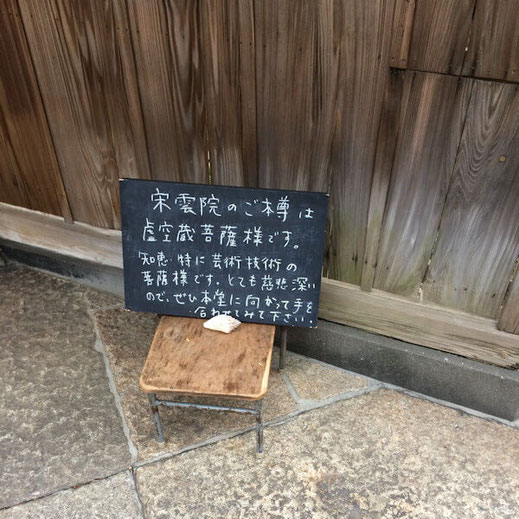 宋雲院のご本尊は
虚空蔵菩薩様です。
知恵・特に芸術技術の
菩薩様です。とても慈悲深い
ので、ぜひ本堂に向かって手を
合わせてみて下さい。